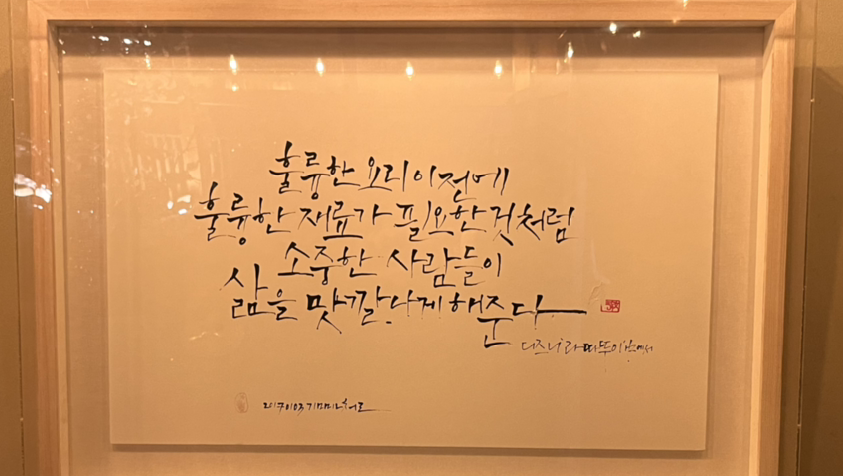 훌륭한 요리 이전에
훌륭한 재료가 필요한 것처럼
소중한 사람들이
삶을 맛깔나게 해준다
디즈니 라따뚜이 中에서